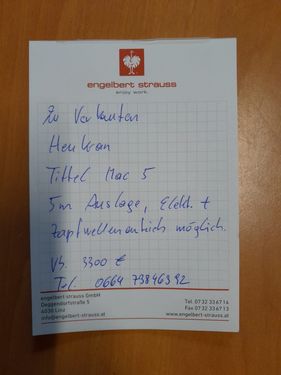 engelbert strauss
enjoy work.
Zu Verkaufen
Heukran
Tittel Mac 5
5m Auslage, Elekt. +
Zapfwellenantrieb möglich.
Vb. 3300 €
Tel. 0664 73846392
engelbert-strauss GmbH
Deggendorfstraße 5
4030 Linz
info@engelbert-strauss.at
Tel. 07 32 33 67 14
Fax 07 32 33 67 13
www.engelbert-strauss.at